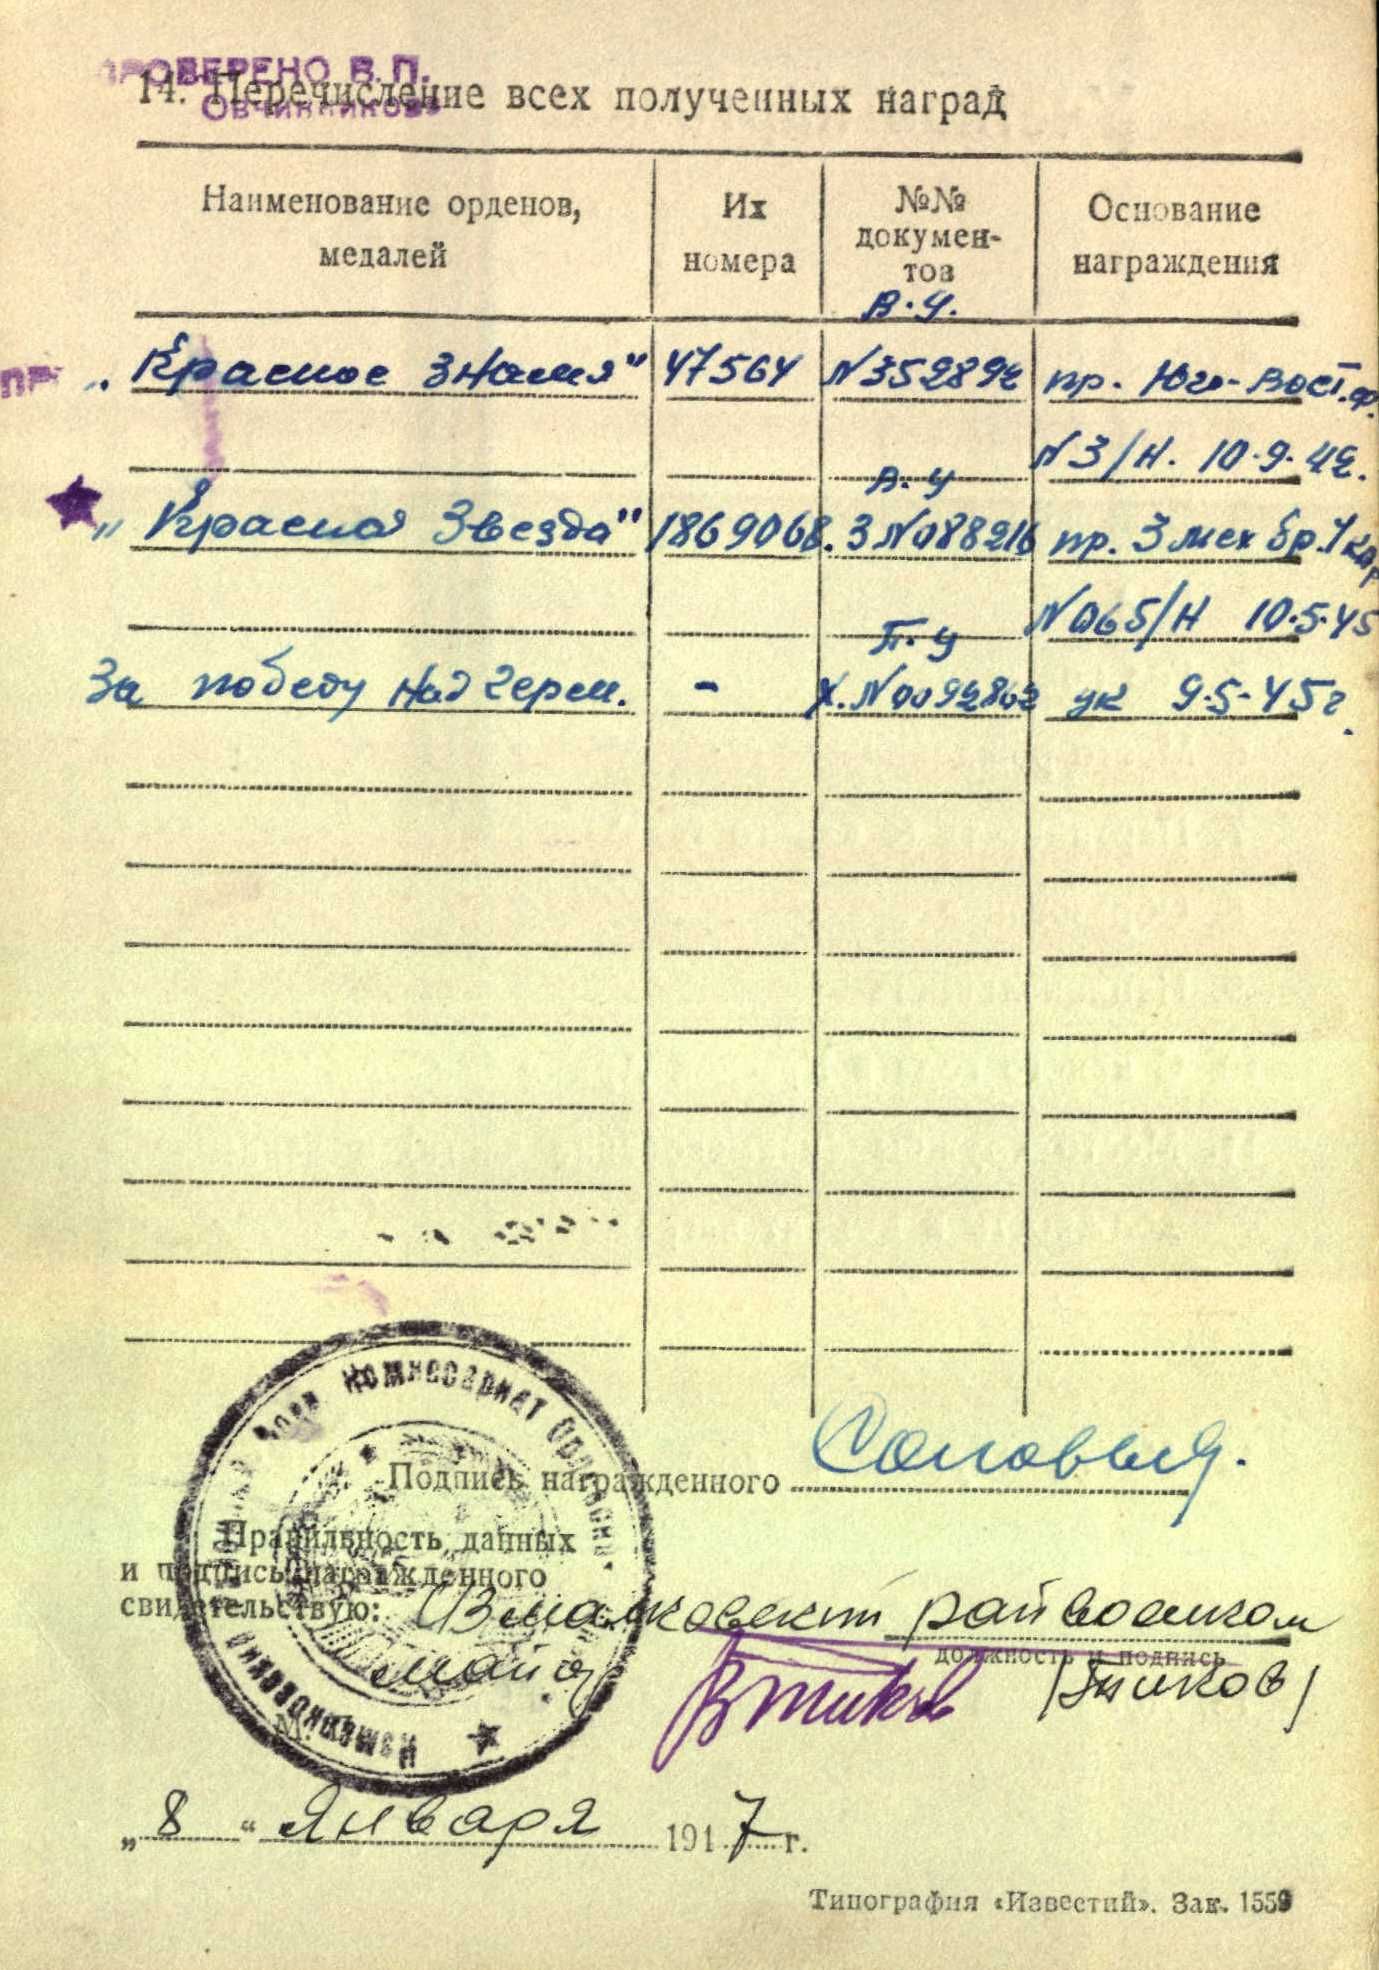 ПРОВЕРЕНО В.П.
Овчинников
14. Перечисление всех полученных наград
Наименование орденов, медалей
Их номера
№№ докумен-
тов
Основание награждения
В.У.
„Красное Знамя" 47564 №352892 пр. Юго-Вост.ф.
№3/н. 10.9.42.
В.У
„Красная Звезда" 1869068. З №088216 пр. 3 мех бр. 1
№065/н 10.5.45
П.У
За победу над Герм. - Х.№0092802 ук 9-5-45г.
Подпись награжденного Соловьев.
Правильность данных
и подпись награжденного
свидетельствую: Измалковский райвоенком
должность и подпись
майор
Измалковский Комиссариат
„8" Января 1947 г.
Типография «Известий». Зак. 1559